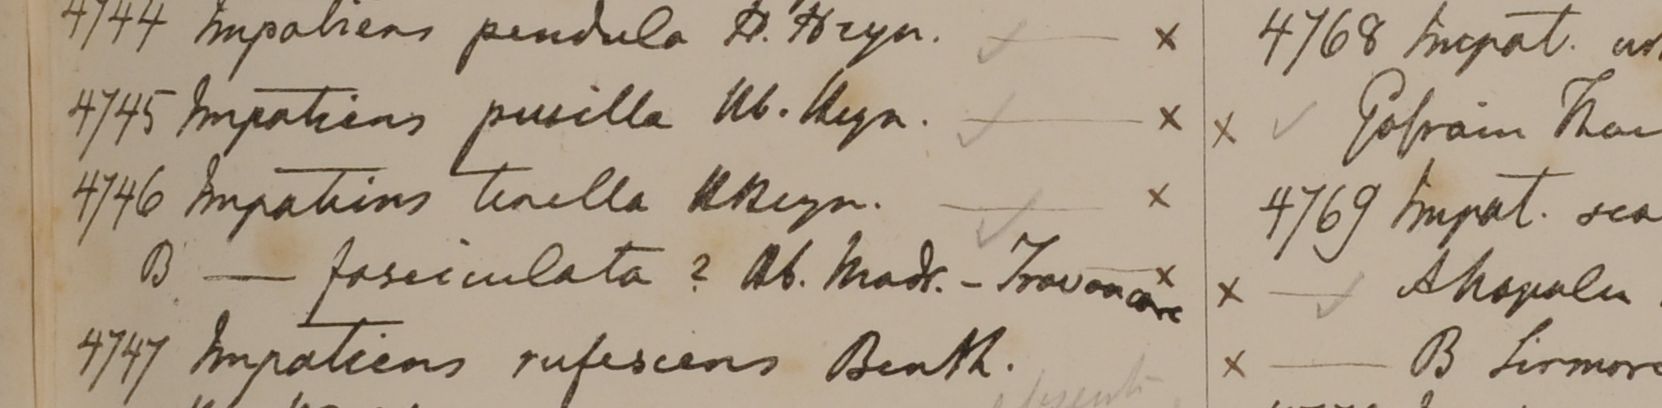 4744 Impatiens pendula H. Heyn. x
4745 Impatiens pusilla Hb. Heyn. x
4746 Impatiens tenella HHeyn. x
B — fasciculata ? Hb. Madr. - Travancore x
4747 Impatiens rufescens Benth.
4768 Impat.
x
4769 Impat. sca
x —
x — B Sirmore